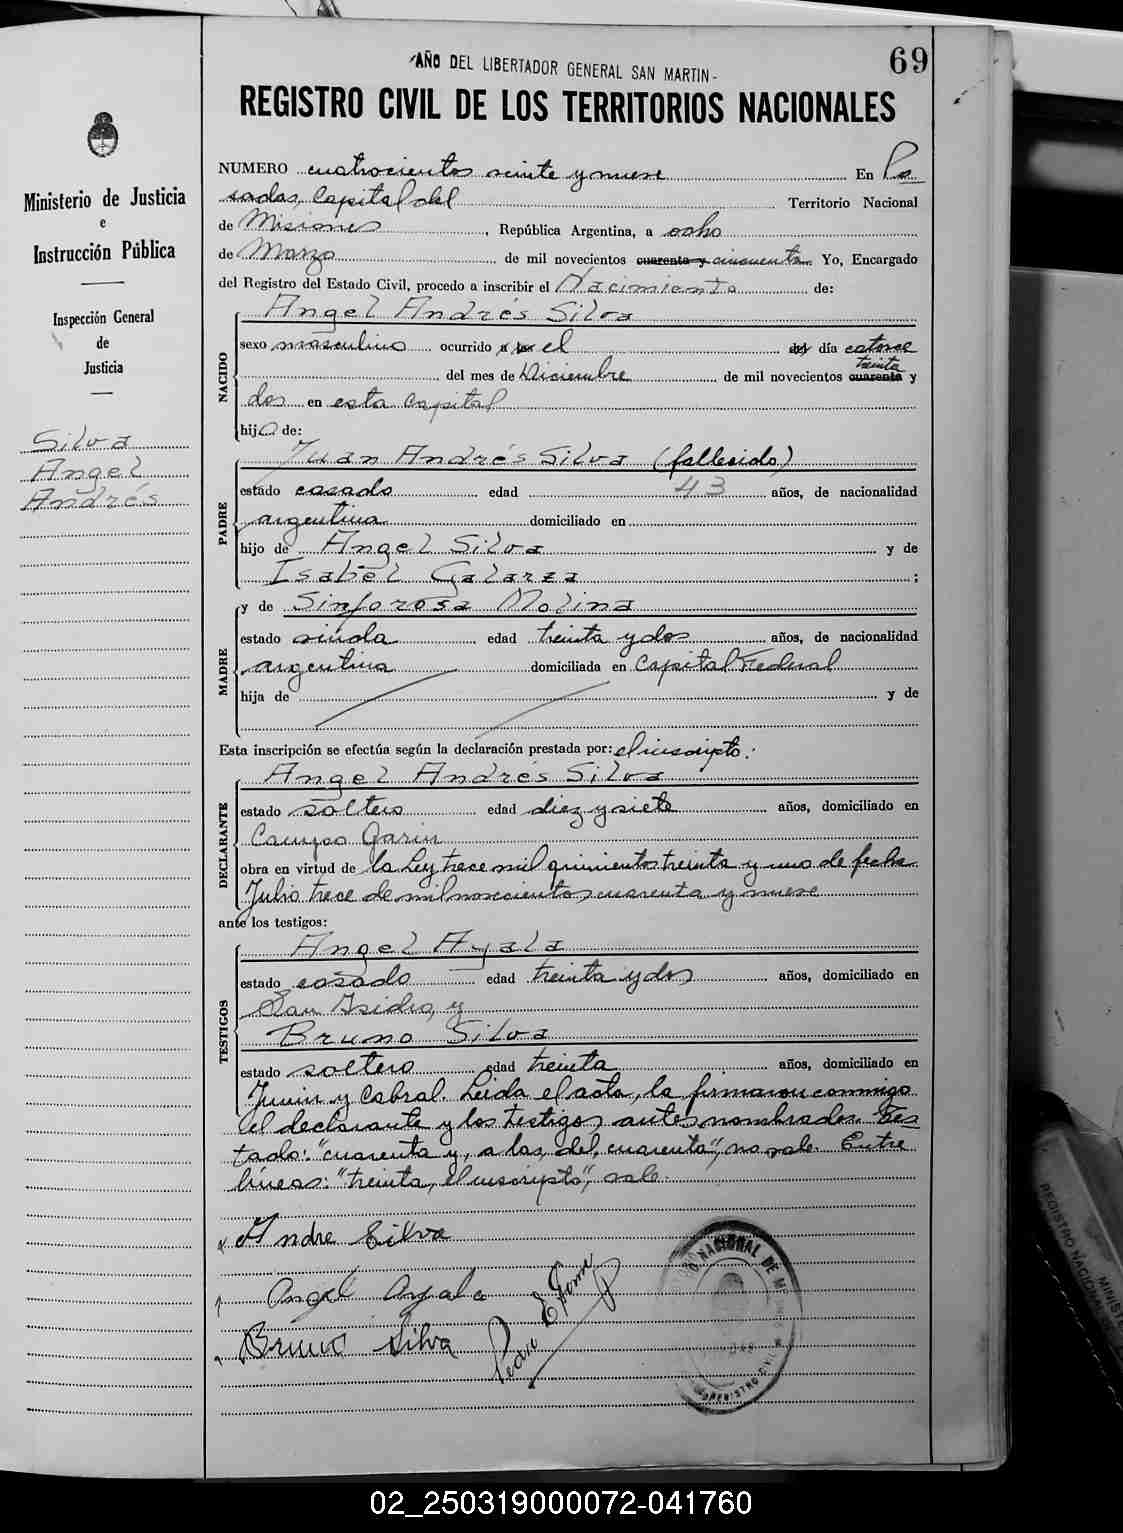 69
"AÑO DEL LIBERTADOR GENERAL SAN MARTIN-
REGISTRO CIVIL DE LOS TERRITORIOS NACIONALES
Ministerio de Justicia
e
Instrucción Pública
Inspección General
de
Justicia
Silva
Angel
Andrés
NUMERO cuatrocientos veinte y nueve En Po
sadas, Capital del Territorio Nacional
de Misiones, República Argentina, a ocho
de Marzo de mil novecientos cuarenta y cincuenta. Yo, Encargado
del Registro del Estado Civil, procedo a inscribir el Nacimiento de:
NACIDO
Angel Andrés Silva
sexo masculino ocurrido a las el del día catorce
treinta
del mes de Diciembre de mil novecientos cuarenta y
dos en esta Capital
hijo de:
PADRE
Juan Andrés Silva (fallecido)
estado casado edad 43 años, de nacionalidad
argentina domiciliado en
hijo de Angel Silva y de
Isabel Galarza ;
MADRE
y de Sinforosa Molina
estado viuda edad treinta y dos años, de nacionalidad
argentina domiciliada en Capital Federal
hija de y de
Esta inscripción se efectúa según la declaración prestada por: el inscripto:
DECLARANTE
Angel Andrés Silva
estado soltero edad diez y siete años, domiciliado en
Campo Garin
obra en virtud de la Ley trece mil quinientos treinta y uno de fecha
Julio trece de mil novecientos cuarenta y nueve
ante los testigos:
TESTIGOS
Angel Ayala
estado casado edad treinta y dos años, domiciliado en
San Isidro, y
Bruno Silva
estado soltero edad treinta años, domiciliado en
Junin y Cabral. Leida el acta, la firmaron conmigo
el declarante y los testigos antes nombrados. Tes=
tado: "cuarenta y, a las, del, cuarenta", no vale. Entre
líneas: "treinta, el inscripto", vale.
Andre Silva
Angel Ayala
Bruno Silva
Pedro E
NACIONAL DE
REGISTRO CIVIL
REGISTRO NACIONAL
MINISTE
02_250319000072-041760